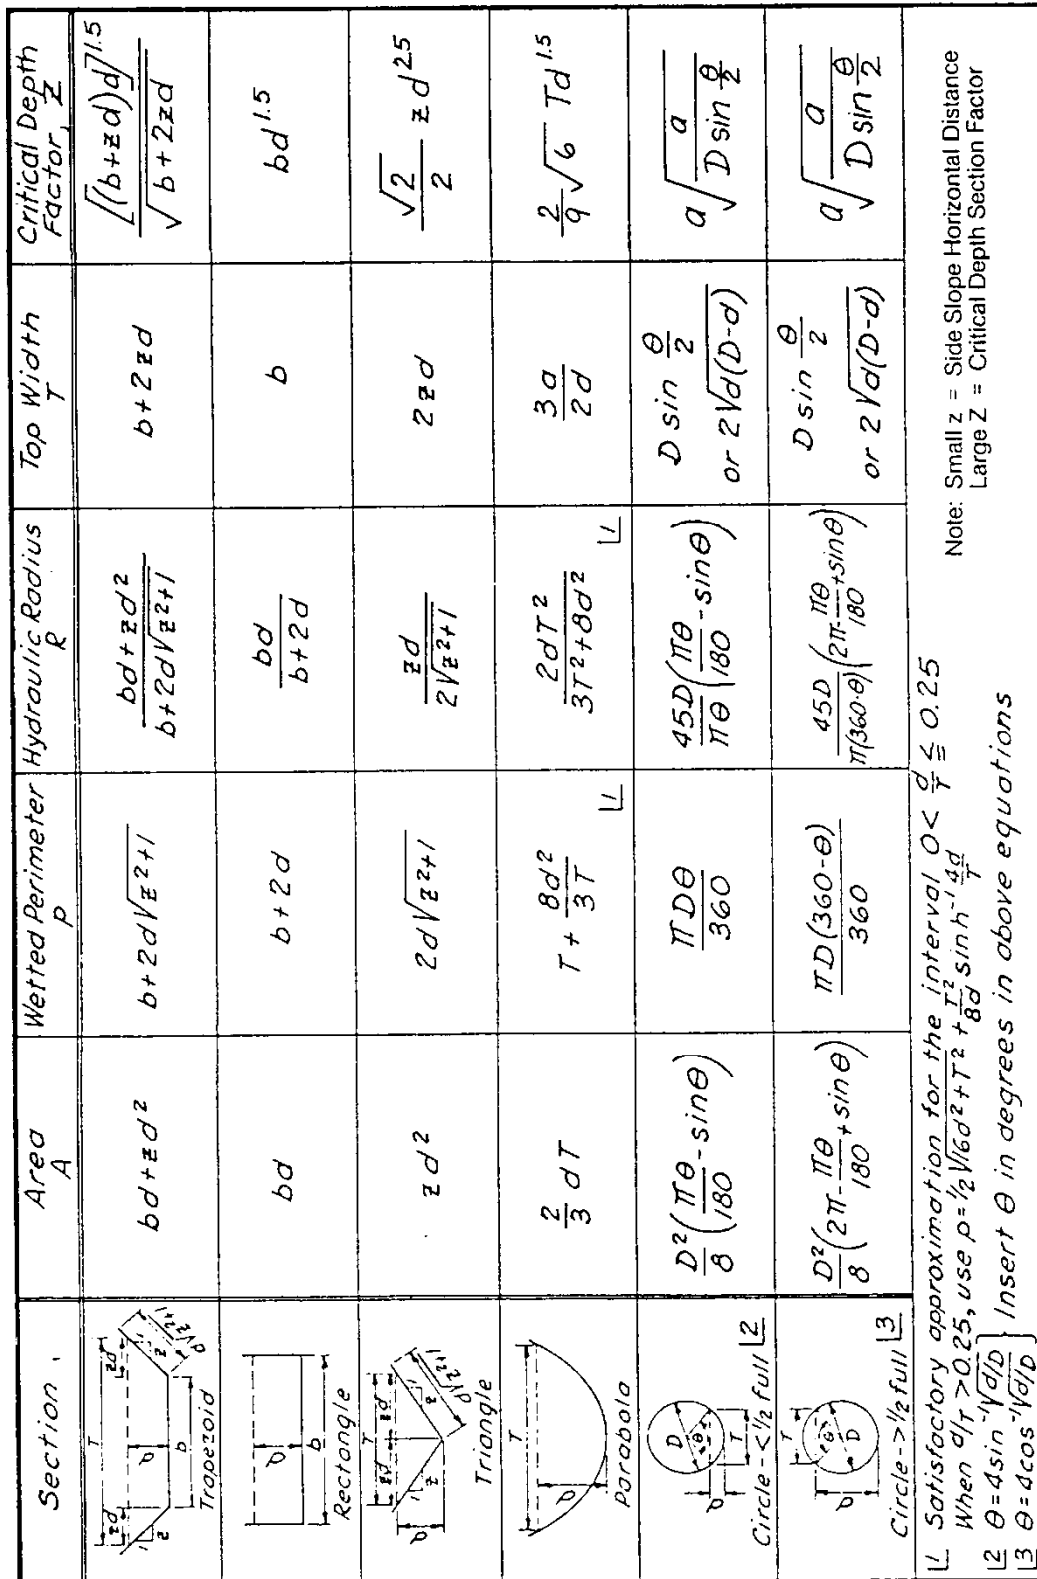 Section
Area A
Wetted Perimeter P
Hydraulic Radius R
Top Width T
Critical Depth Factor, Z
T
zd
zd
1
z
d
b
1
z
d√z²+1
Trapezoid
bd+zd²
b+2d√z²+1
bd+zd² / b+2d√z²+1
b+2zd
[(b+zd)d]^1.5 / √b+2zd
d
b
Rectangle
bd
b+2d
bd / b+2d
b
bd^1.5
T
zd
zd
1
z
d
1
z
d√z²+1
Triangle
zd²
2d√z²+1
zd / 2√z²+1
2zd
√2/2 zd^2.5
T
d
Parabola
2/3 dT
T + 8d²/3T |1
2dT² / 3T²+8d² |1
3a/2d
2/9 √6 Td^1.5
D
θ
T
d
Circle-<1/2 full |2
D²/8 (πθ/180 - sinθ)
πDθ/360
45D/πθ (πθ/180 - sinθ)
D sin θ/2
or 2√d(D-d)
a√(a / D sin θ/2)
T
θ
D
d
Circle->1/2 full |3
D²/8 (2π - πθ/180 + sinθ)
πD(360-θ)/360
45D/π(360-θ) (2π - πθ/180 + sinθ)
D sin θ/2
or 2√d(D-d)
a√(a / D sin θ/2)
|1 Satisfactory approximation for the interval 0 < d/T ≦ 0.25
When d/T > 0.25, use p = 1/2√16d²+T² + T²/8d sinh⁻¹ 4d/T
|2 θ=4sin⁻¹√d/D } Insert θ in degrees in above equations
|3 θ=4cos⁻¹√d/D
Note: Small z = Side Slope Horizontal Distance
Large Z = Critical Depth Section Factor